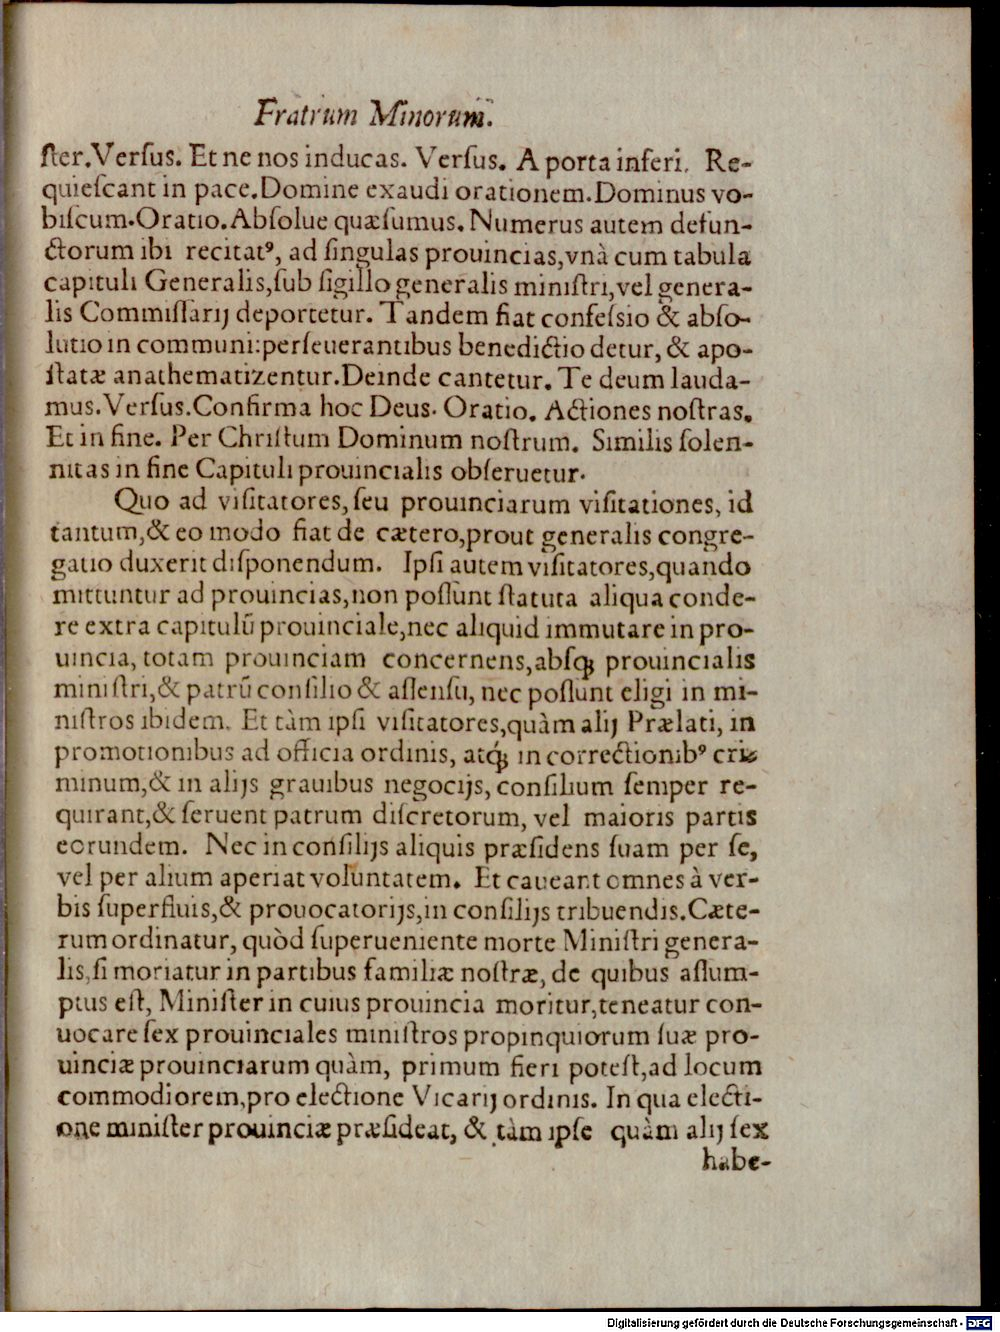 Fratrum Minorum.
ſter. Verſus. Et ne nos inducas. Verſus. A porta inferi. Re-
quieſcant in pace. Domine exaudi orationem. Dominus vo-
biſcum. Oratio. Abſolue quæſumus. Numerus autem defun-
ctorum ibi recitatꝰ, ad ſingulas prouincias, vnà cum tabula
capituli Generalis, ſub ſigillo generalis miniſtri, vel genera-
lis Commiſſarij deportetur. Tandem fiat confeſsio & abſo-
lutio in communi: perſeuerantibus benedictio detur, & apo-
ſtatæ anathematizentur. Deinde cantetur. Te deum lauda-
mus. Verſus. Confirma hoc Deus. Oratio. Actiones noſtras.
Et in fine. Per Chriſtum Dominum noſtrum. Similis ſolen-
nitas in fine Capituli prouincialis obſeruetur.
Quo ad viſitatores, ſeu prouinciarum viſitationes, id
tantum, & eo modo fiat de cætero, prout generalis congre-
gatio duxerit diſponendum. Ipſi autem viſitatores, quando
mittuntur ad prouincias, non poſſunt ſtatuta aliqua conde-
re extra capitulū prouinciale, nec aliquid immutare in pro-
uincia, totam prouinciam concernens, abſqꝫ prouincialis
miniſtri, & patrū conſilio & aſſenſu, nec poſſunt eligi in mi-
niſtros ibidem. Et tàm ipſi viſitatores, quàm alij Prælati, in
promotionibus ad officia ordinis, atqꝫ́ in correctionibꝰ cri-
minum, & in alijs grauibus negocijs, conſilium ſemper re-
quirant, & ſeruent patrum diſcretorum, vel maioris partis
eorundem. Nec in conſilijs aliquis præſidens ſuam per ſe,
vel per alium aperiat voluntatem. Et caueant omnes à ver-
bis ſuperfluis, & prouocatorijs, in conſilijs tribuendis. Cæte-
rum ordinatur, quòd ſuperueniente morte Miniſtri genera-
lis, ſi moriatur in partibus familiæ noſtræ, de quibus aſſum-
ptus eſt, Miniſter in cuius prouincia moritur, teneatur con-
uocare ſex prouinciales miniſtros propinquiorum ſuæ pro-
uinciæ prouinciarum quàm, primum fieri poteſt, ad locum
commodiorem, pro electione Vicarij ordinis. In qua electi-
one miniſter prouinciæ præſideat, & tàm ipſe quàm alij ſex
habe-
Digitalisierung gefördert durch die Deutsche Forschungsgemeinschaft - DFG